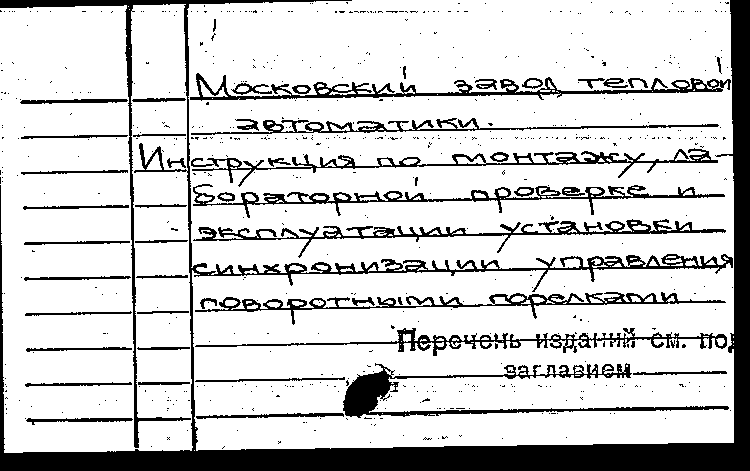 Московский завод тепловой
автоматики.
Инструкция по монтажу, ла-
бораторной проверке и
эксплуатации установки
синхронизации управления
поворотными горелками
Перечень изданий см. под
заглавием